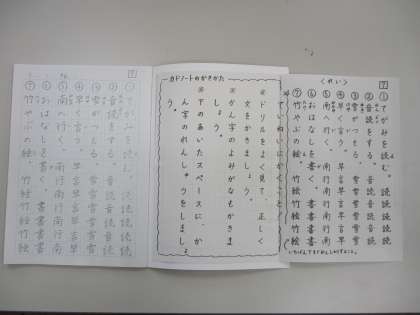 カドノートのかきかた
ドリルをよく見て、正しく
文をかきましょう。
かん字のよみがなもかきま
しょう。
下のあいたスペースに、か
ん字のれんしゅうをしましょ
う。
＜れい＞
①てがみを読む。 読 読
②音読をする。 音読 音読
③雪がつもる。 雪 雪 雪
④早く言う。 早言 早言
⑤南へ行く。 南行 南行
⑥おはなしを書く。 書 書
⑦竹やぶの絵 竹絵 竹絵
①てがみを読む。 読 読
②音読をする 音読 音読
③雪がつもる。 雪 雪 雪
④早く言う。 早言 早言
⑤南へ行く。 南行 南行
⑥おはなしを書く。 書 書
⑦竹やぶの絵 竹絵 竹絵